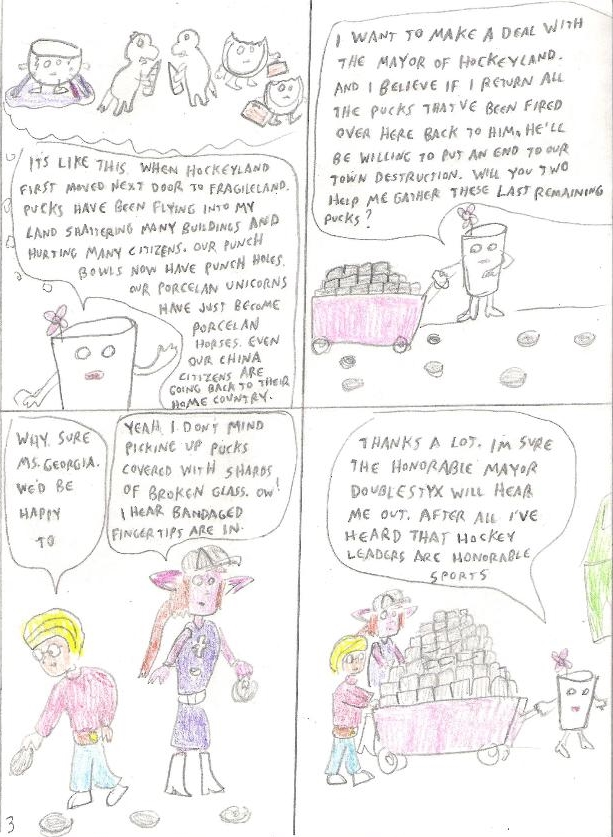 IT'S LIKE THIS. WHEN HOCKEYLAND
FIRST MOVED NEXT DOOR TO FRAGILELAND.
PUCKS HAVE BEEN FLYING INTO MY
LAND SHATTERING MANY BUILDINGS AND
HURTING MANY CITIZENS. OUR PUNCH
BOWLS NOW HAVE PUNCH HOLES.
OUR PORCELAN UNICORNS
HAVE JUST BECOME
PORCELAN
HORSES. EVEN
OUR CHINA
CITIZENS ARE
GOING BACK TO THEIR
HOME COUNTRY.
I WANT TO MAKE A DEAL WITH
THE MAYOR OF HOCKEYLAND.
AND I BELIEVE IF I RETURN ALL
THE PUCKS THAT'VE BEEN FIRED
OVER HERE BACK TO HIM, HE'LL
BE WILLING TO PUT AN END TO OUR
TOWN DESTRUCTION. WILL YOU TWO
HELP ME GATHER THESE LAST REMAINING
PUCKS?
WHY SURE
MS. GEORGIA.
WE'D BE
HAPPY
TO
YEAH, I DON'T MIND
PICKING UP PUCKS
COVERED WITH SHARDS
OF BROKEN GLASS. OW!
I HEAR BANDAGED
FINGERTIPS ARE IN.
THANKS A LOT. I'M SURE
THE HONORABLE MAYOR
DOUBLESTYX WILL HEAR
ME OUT. AFTER ALL I'VE
HEARD THAT HOCKEY
LEADERS ARE HONORABLE
SPORTS
3